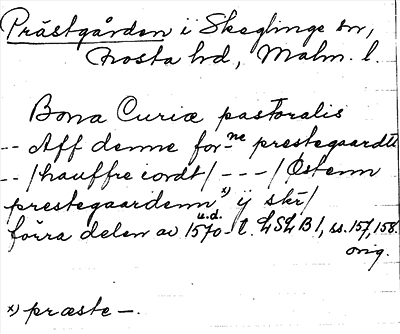 Prästgården i Skeglinge sn,
Frosta hd, Malm. l.
Bona Curiæ pastoralis
-- Aff denne for-ne prestegaardtz
-- /hauffre iordt/ --- / Østenn
prestegaardenn x) ij skr/
förra delen av 1570-t. u.d. LSLB 1, ss. 157, 158.
orig.
x) præste -.